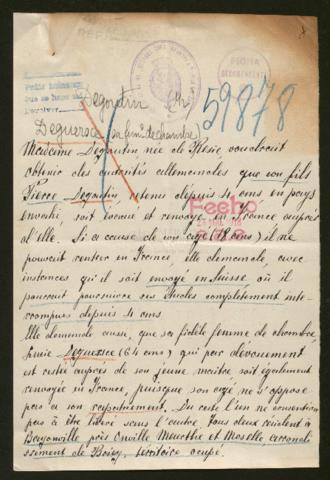 8
Degoutin
59878
Deguerse
(sa femme de chambre)
Fecho
Madame Degoutin née de Klesie voudrait
obtenir des autorités allemandes que son fils
Pierre Degoutin, retenu depuis 4 ans en pays
envahi, soit évacué et renvoyé en France auprès
d'elle. Si à cause de son âge (18 ans) il ne
pouvait rentrer en France, elle demande, avec
instances qu'il soit envoyé en Suisse, où il
pourrait poursuivre ses études complètement inter-
rompues depuis 4 ans.
Elle demande aussi, que sa fidèle femme de chambre,
Deguerse (64 ans) qui par dévouement
est restée auprès de son jeune maître soit également
renvoyée en France, puisque son âge ne s'oppose
pas à son rapatriement. Du reste l'un ne consentira
pas à être libéré sans l'autre. Tous deux résident à
Bazonville près Onville Meurthe et Moselle, arrondis-
sement de Briey, territoire occupé.